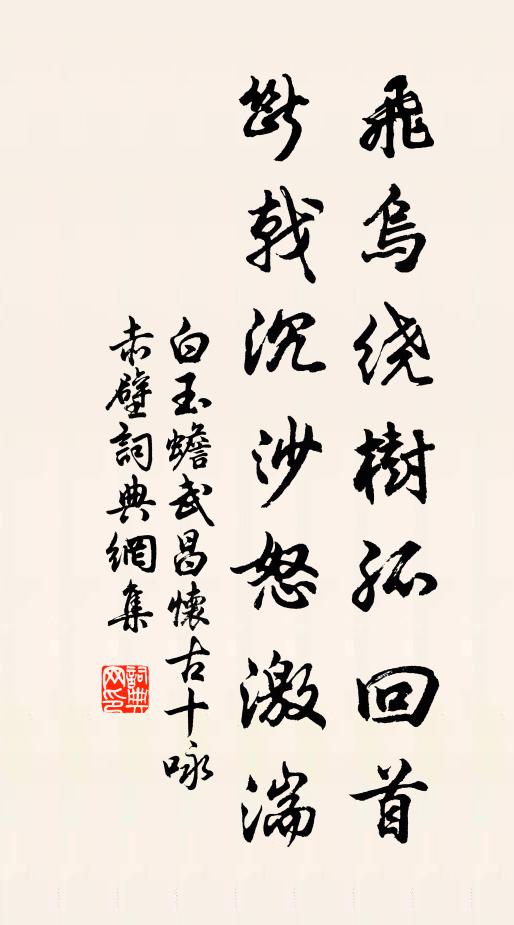 飛烏繞樹孤回首
斷戟沉沙怒激湍
白玉蟾武昌懷古十咏
赤壁詞典網集
詞典網印